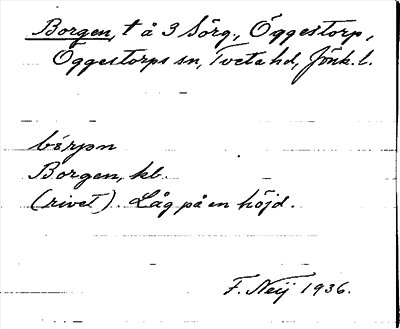 Borgen, † å 3 Sörg., Öggestorp,
Öggestorps sn, Tveta hd, Jönk. l.
bórjən
Borgen, kb.
(rivet). Låg på en höjd.
F. Neij 1936.